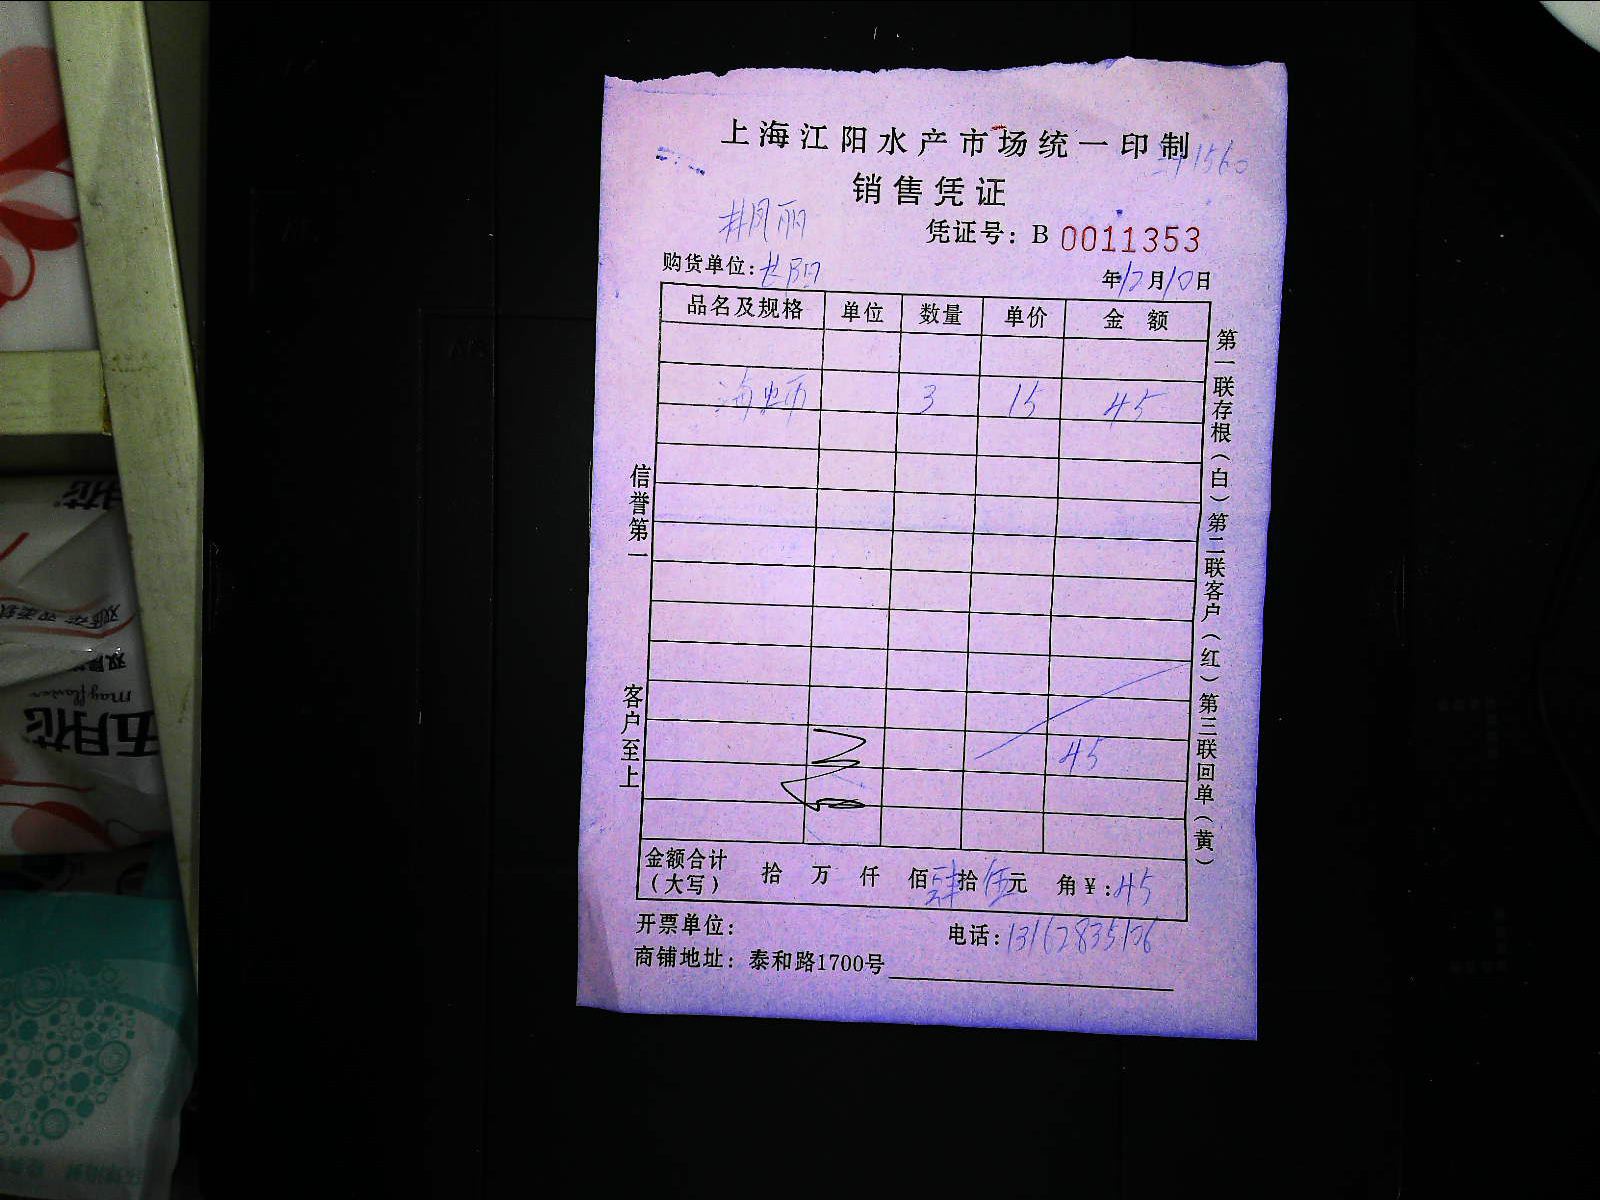 上海江阳水产市场统一印制
1560
销售凭证
井凤丽
凭证号：B 0011353
购货单位：
年12月10日
品名及规格 单位 数量 单价 金 额
海蛎 3 15 45
45
金额合计（大写） 拾 万 仟 佰肆拾伍元 角￥：45
开票单位： 电话：
商铺地址：泰和路1700号
信誉第一 客户至上
第一联存根（白）第二联客户（红）第三联回单（黄）
五月花
mayflower